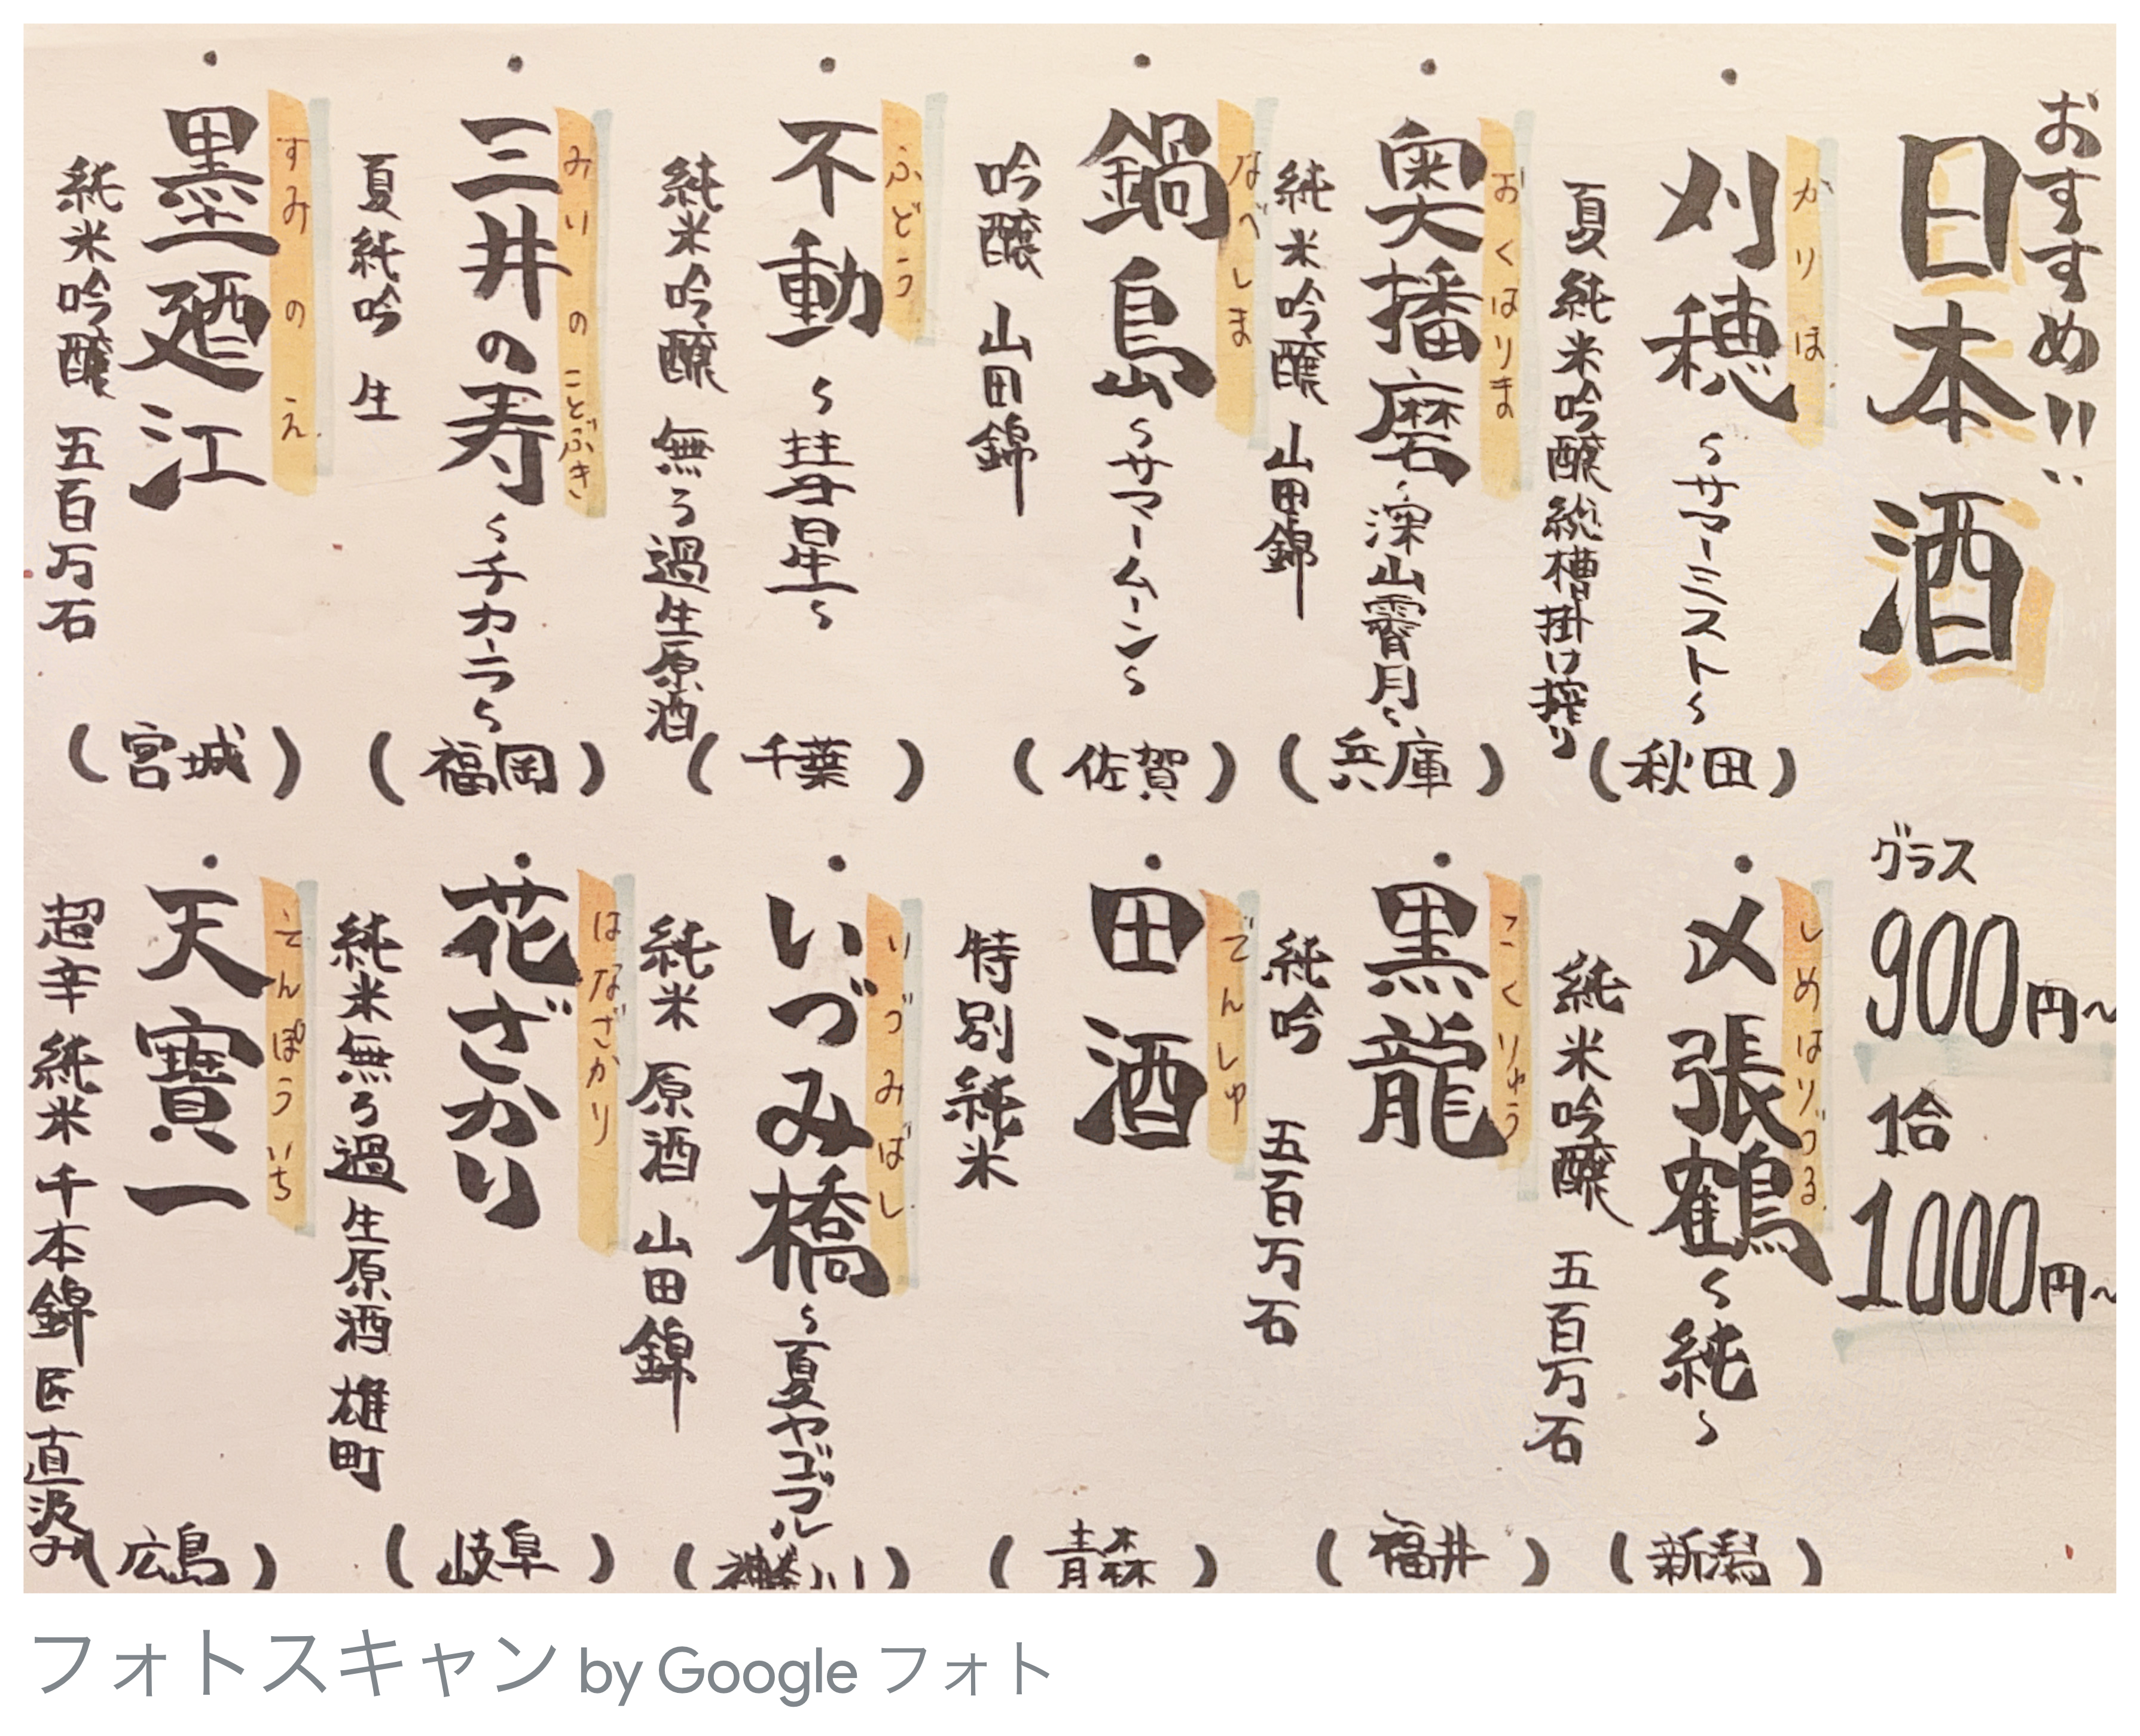 おすすめ!!
日本酒
・刈穂 ~サマーミスト~
かりほ
夏純米吟醸 総槽掛け搾り
(秋田)
・奥播磨 ~深山霽月~
おくはりま
純米吟醸 山田錦
(兵庫)
・鍋島 ~サマームーン~
なべしま
吟醸 山田錦
(佐賀)
・不動 ~彗星~
ふどう
純米吟醸 無ろ過生原酒
(千葉)
・三井の寿 ~チカーラ~
みいのことぶき
夏純吟 生
(福岡)
・墨廼江
すみのえ
純米吟醸 五百万石
(宮城)
グラス
900円~
1合
1000円~
・〆張鶴 ~純~
しめはりつる
純米吟醸 五百万石
(新潟)
・黒龍
こくりゅう
純吟 五百万石
(福井)
・田酒
でんしゅ
特別純米
(青森)
・いづみ橋 ~夏ヤゴブル
いづみばし
純米 原酒 山田錦
(神奈川)
・花ざかり
はなざかり
純米無ろ過生原酒 雄町
(岐阜)
・天寶一
てんぽういち
超辛純米 千本錦 匠 直汲み
(広島)
フォトスキャン by Google フォト